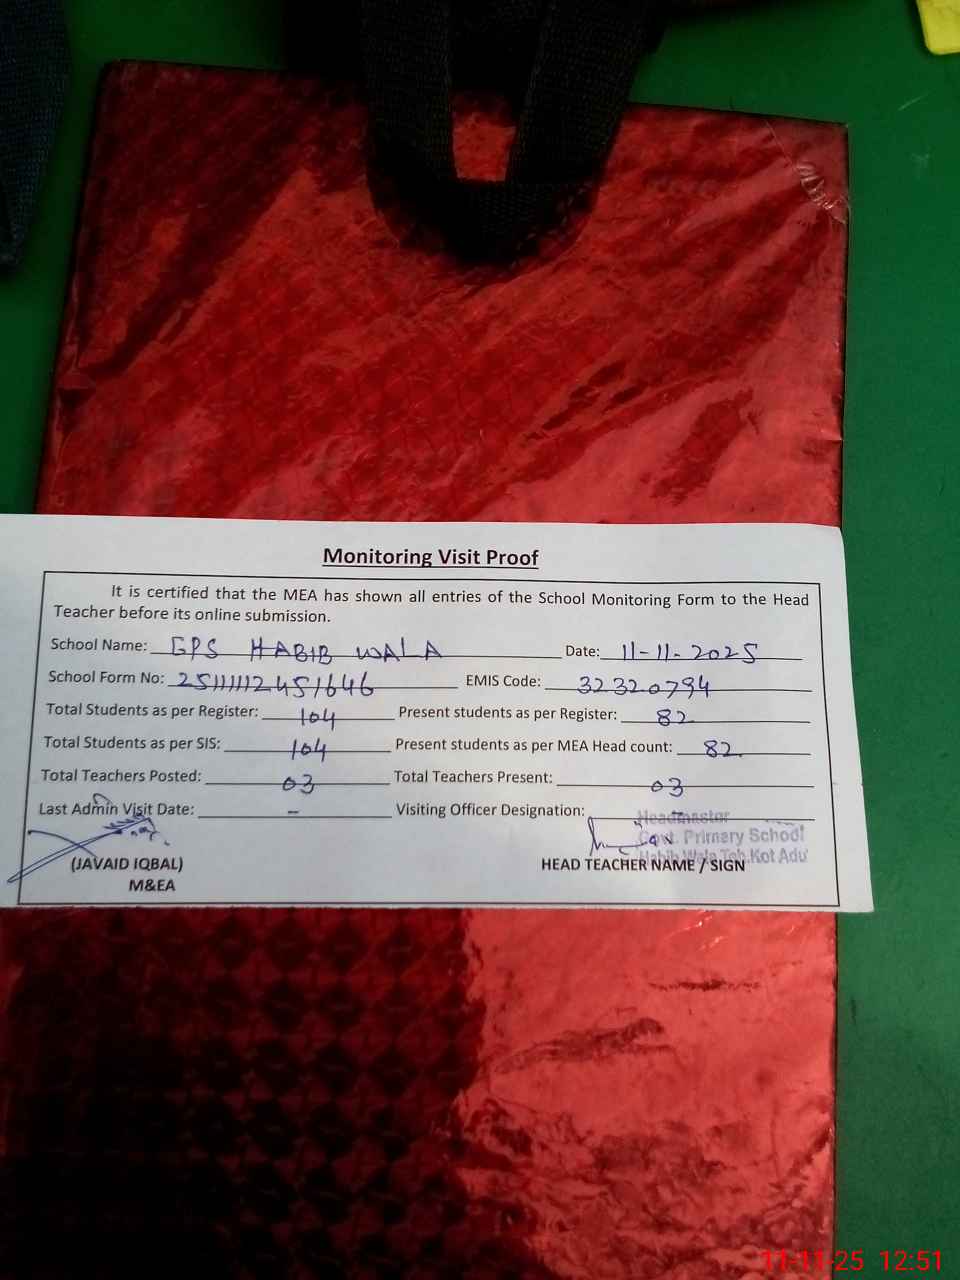 Monitoring Visit Proof
It is certified that the MEA has shown all entries of the School Monitoring Form to the Head
Teacher before its online submission.
School Name: GPS HABIB WALA Date: 11-11-2025
School Form No: EMIS Code: 32320794
Total Students as per Register: 104 Present students as per Register: 82
Total Students as per SIS: 104 Present students as per MEA Head count: 82
Total Teachers Posted: 03 Total Teachers Present: 03
Last Admin Visit Date: – Visiting Officer Designation: –
Headmaster
Govt. Primary School
Habib Wala Teh. Kot Adu
(JAVAID IQBAL) HEAD TEACHER NAME / SIGN
M&EA
11-11-25 12:51